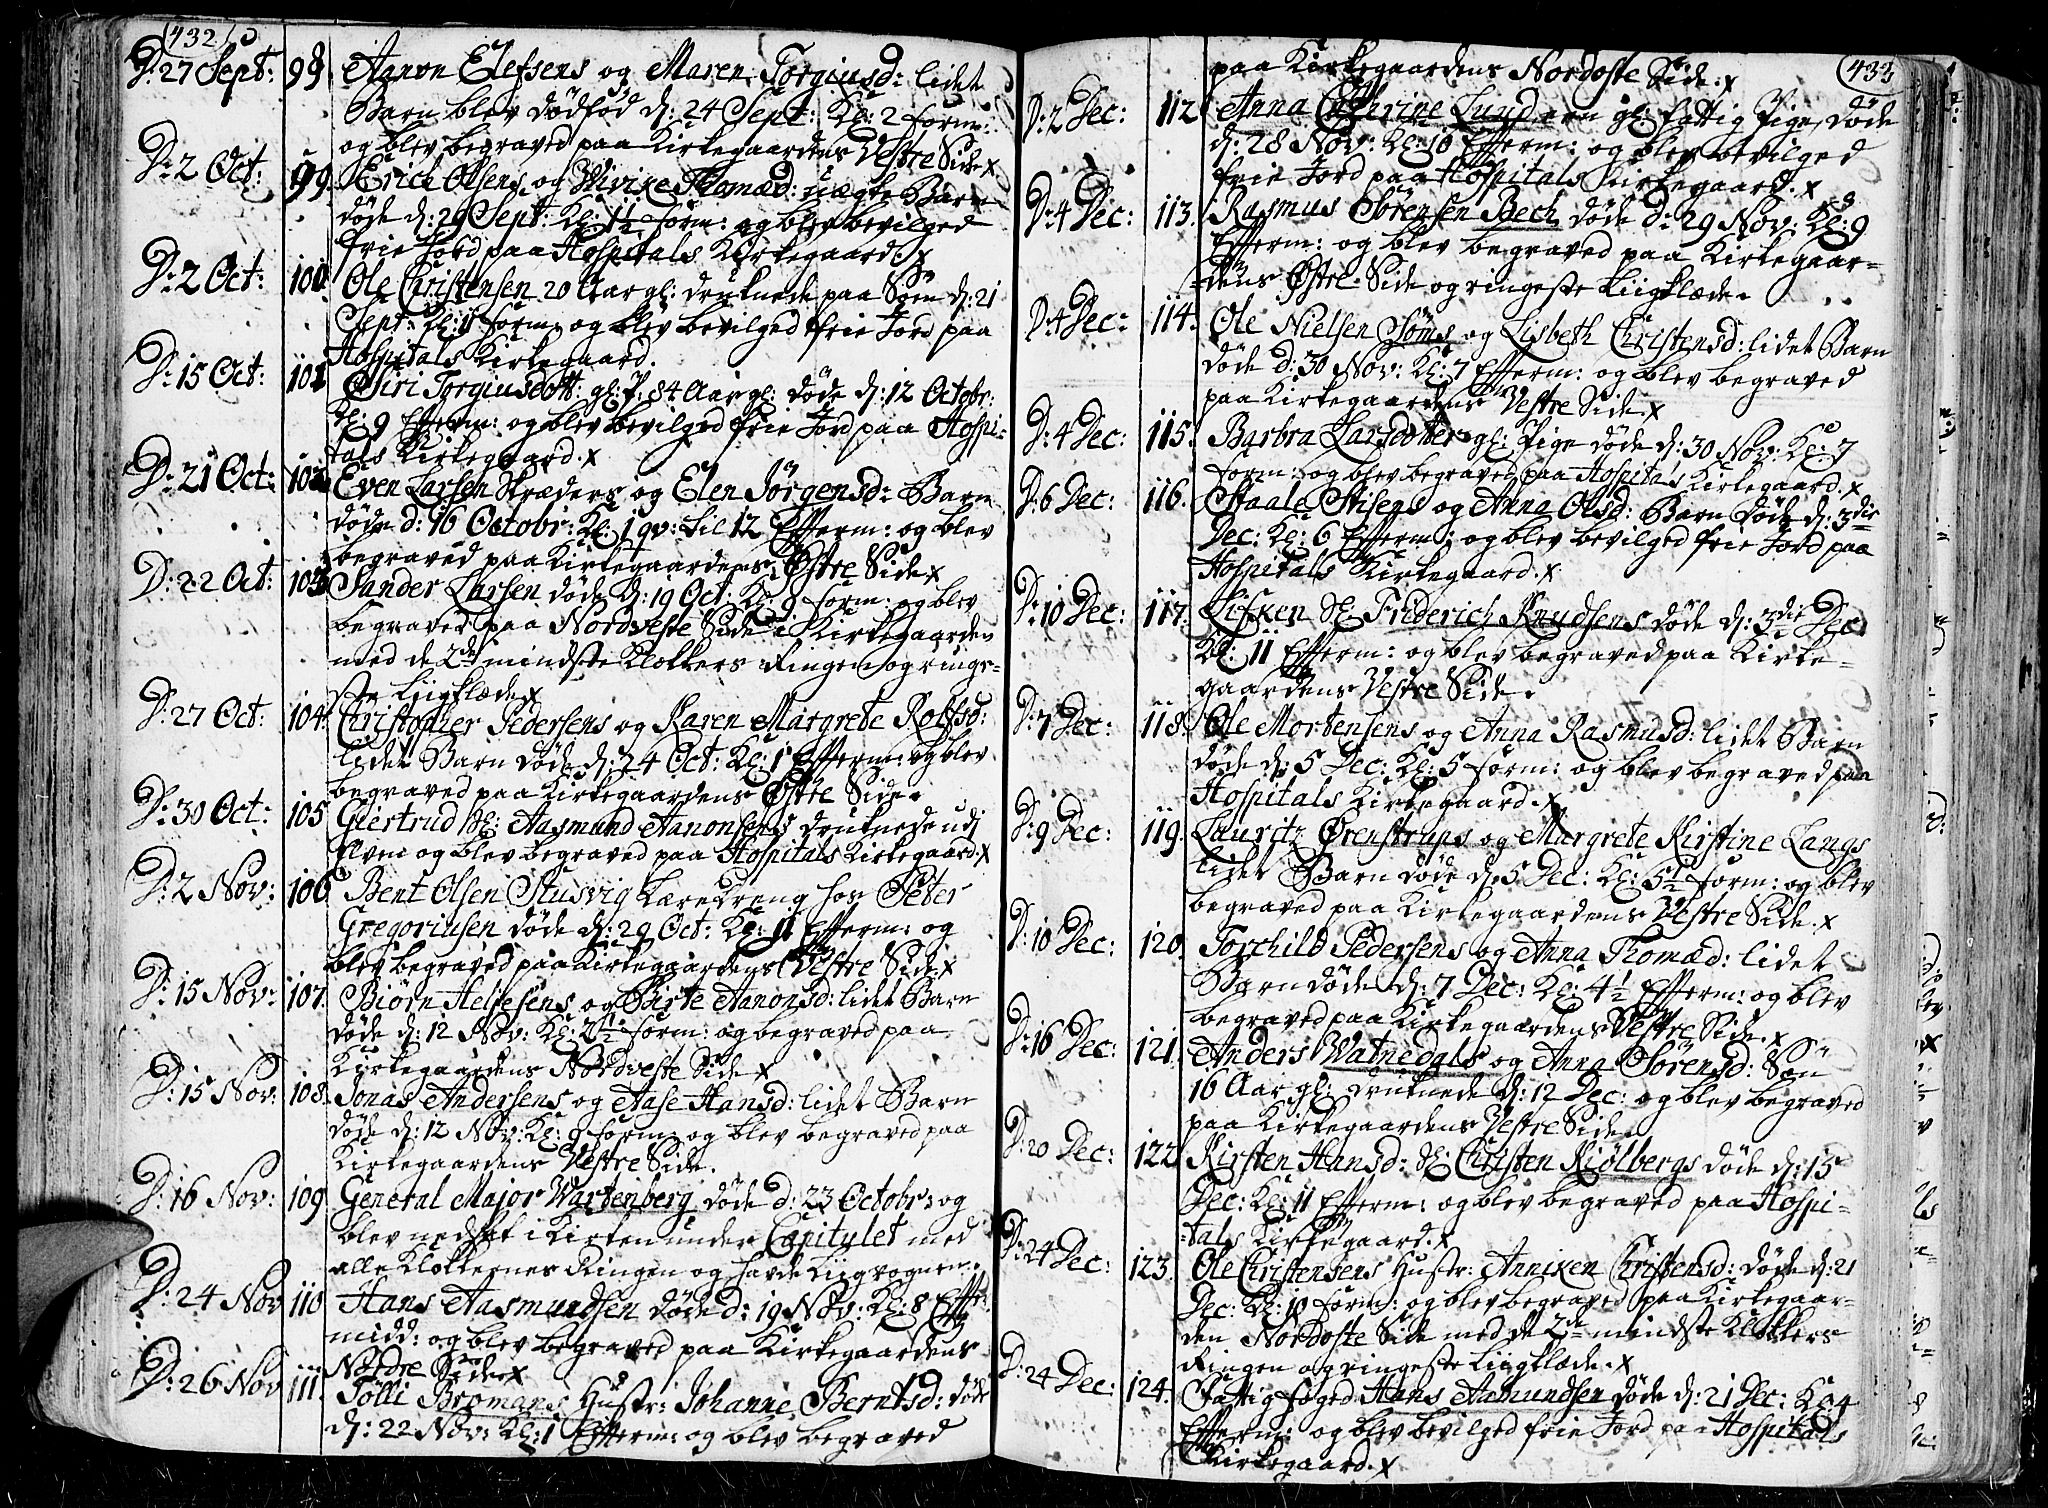 432
D: 27 Sept: 98 Aanon Elefsens og Maren Torgiusd: lidet
Barn blev dødfød d: 24 Sept: Kl: 2 form:
og blev begraved paa Kirkegaardens Vestre Side x
D: 2 Oct: 99. Erich Olsens og Wivike Thomæd: uægte Barn
døde d: 29 Sept: Kl: 1½ form: og blev bevilged
frie Jord paa Hospitals Kirkegaard. x
D: 2 Oct: 100. Ole Christensen 20 Aar gl: druknede paa Søen d: 21
Sept: Kl: 11 form: og blev bevilged frie Jord paa
Hospitals Kirkegaard.
D: 15 Oct: 101 Siri Torgiusdott: gl: P: 84 Aar gl: døde d: 12 Octobr:
Kl: 9 Efferm: og blev bevilged frie Jord paa Hospi-
tals Kirkegaard. x
D: 21 Oct: 102 Even Larsen Skræders og Elen Jørgensd: Barn
døde d: 16 Octobr: Kl: 1 qv: til 12 Efferm: og blev
begraved paa Kirkegaardens Østre Side x
D: 22 Oct: 103 Sander Larsen døde d: 19 Oct: Kl: 9 form: og blev
begraved paa Nordveste Side i Kirkegaarden
med de 2de mindste Klokkers Ringen og ringe-
ste Liigklæde x
D: 27 Oct: 104. Christopher Pedersens og Karen Margrete Rolfsd:
lidet Barn døde d: 24 Oct: Kl: 1 Efferm: og blev
begraved paa Kirkegaardens Østre Side.
D: 30 Oct: 105 Giertrud Sl: Aasmund Aanonsens druknede udi
Elven og blev begraved paa Hospitals Kirkegaard. x
D: 2 Nov: 106 Bent Olsen Stusvig Læredreng hos Peter
Gregoriusen døde d: 29 Oct: Kl: 11 Efferm: og
blev begraved paa Kirkegaardens Vestre Side x
D: 15 Nov: 107. Biørn Heljesens og Birte Aanonsd: lidet Barn
døde d: 12 Nov: Kl: 2½ form: og begraved paa
Kirkegaardens Nordveste Side x
D: 15 Nov: 108. Jonas Andersens og Aase Hansd: lidet Barn
døde d: 12 Nov: Kl: 9 form: og blev begraved paa
Kirkegaardens Vestre Side.
D: 16 Nov: 109 General Major Wartenberg døde d: 23 Octobr: og
blev nedsat i Kirken under Capitulet med
alle Klokkernes Ringen og havde Liigvognen.
D: 24 Nov 110 Hans Aasmundsen døde d: 19 Nov: Kl: 8 Efter
midd: og blev begraved paa Kirkegaardens
Nordre Side x
D: 26 Nov 111. Tolli Bromans Hustr: Johanne Berntsd: døde
d: 22 Nov: Kl: 1 Efferm: og blev begraved
433
paa Kirkegaardens Nordoste Side. x
D: 2 Dec: 112. Anna Cathrine Lund een gl: fattig Pige, døde
d: 28 Nov: Kl: 10 Efferm: og blev bevilged
frie Jord paa Hospitals Kirkegaard. x
D: 4 Dec: 113. Rasmus Sørensen Bech døde d: 29 Nov: Kl: 9
Efferm: og blev begraved paa Kirkegaar-
dens Østre Side og ringeste Liigklæde.
D: 4 Dec: 114. Ole Nielsen Søms og Lisbeth Christensd: lidet Barn
døde d: 30 Nov: Kl: 7 Efferm: og blev begraved
paa Kirkegaardens Vestre Side x
D: 4 Dec: 115. Barbra Larsdotter gl: Pige døde d: 30 Nov: Kl: 7
form: og blev begraved paa Hospitals Kirkegaard. x
D: 6 Dec: 116. Staale Stisens og Anna Olsd: Barn døde d: 3die
Dec: Kl: 6 Efferm: og blev bevilged frie Jord paa
Hospitals Kirkegaard. x
D: 10 Dec: 117. Lisken Sl: Friderich Knudsens døde d: 3die Dec
Kl: 11 Efferm: og blev begraved paa Kirke-
gaardens Vestre Side.
D: 7 Dec: 118. Ole Mortensens og Anna Rasmusd: lidet Barn
døde d: 5 Dec: Kl: 5 form: og blev begraved paa
Hospitals Kirkegaard. x
D: 9 Dec: 119. Lauritz Ørenstrups og Margrete Kirstine Langs
lidet Barn døde d: 5 Dec: Kl: 5½ form: og blev
begraved paa Kirkegaardens Vestre Side. x
D: 10 Dec: 120. Torchild Pedersens og Anna Thomæd: lidet
Barn døde d: 7 Dec: Kl: 4½ Efferm: og blev
begraved paa Kirkegaardens Vestre Side. x
D: 16 Dec: 121. Anders Watnedals og Anna Sørensd: Søn
16 Aar gl: druknede d: 12 Dec: og blev begraved
paa Kirkegaardens Vestre Side.
D: 20 Dec: 122 Kirsten Hansd: Sl: Christen Kiølbergs døde d: 15
Dec: Kl: 11 Efferm: og blev begraved paa Hospi-
tals Kirkegaard. x
D: 24 Dec: 123. Ole Christensens Hustr: Anniken Christensd: døde d: 21
Dec: Kl: 10 form: og blev begraved paa Kirkegaar-
den Nordoste Side med de 2de mindste Klokkers
Ringen og ringeste Liigklæde. x
D: 24 Dec: 124. Fattig foged Hans Aamundsen døde d: 21 Dec: Kl: 4
Efferm: og blev bevilged frie Jord paa Hospitals
Kirkegaard. x